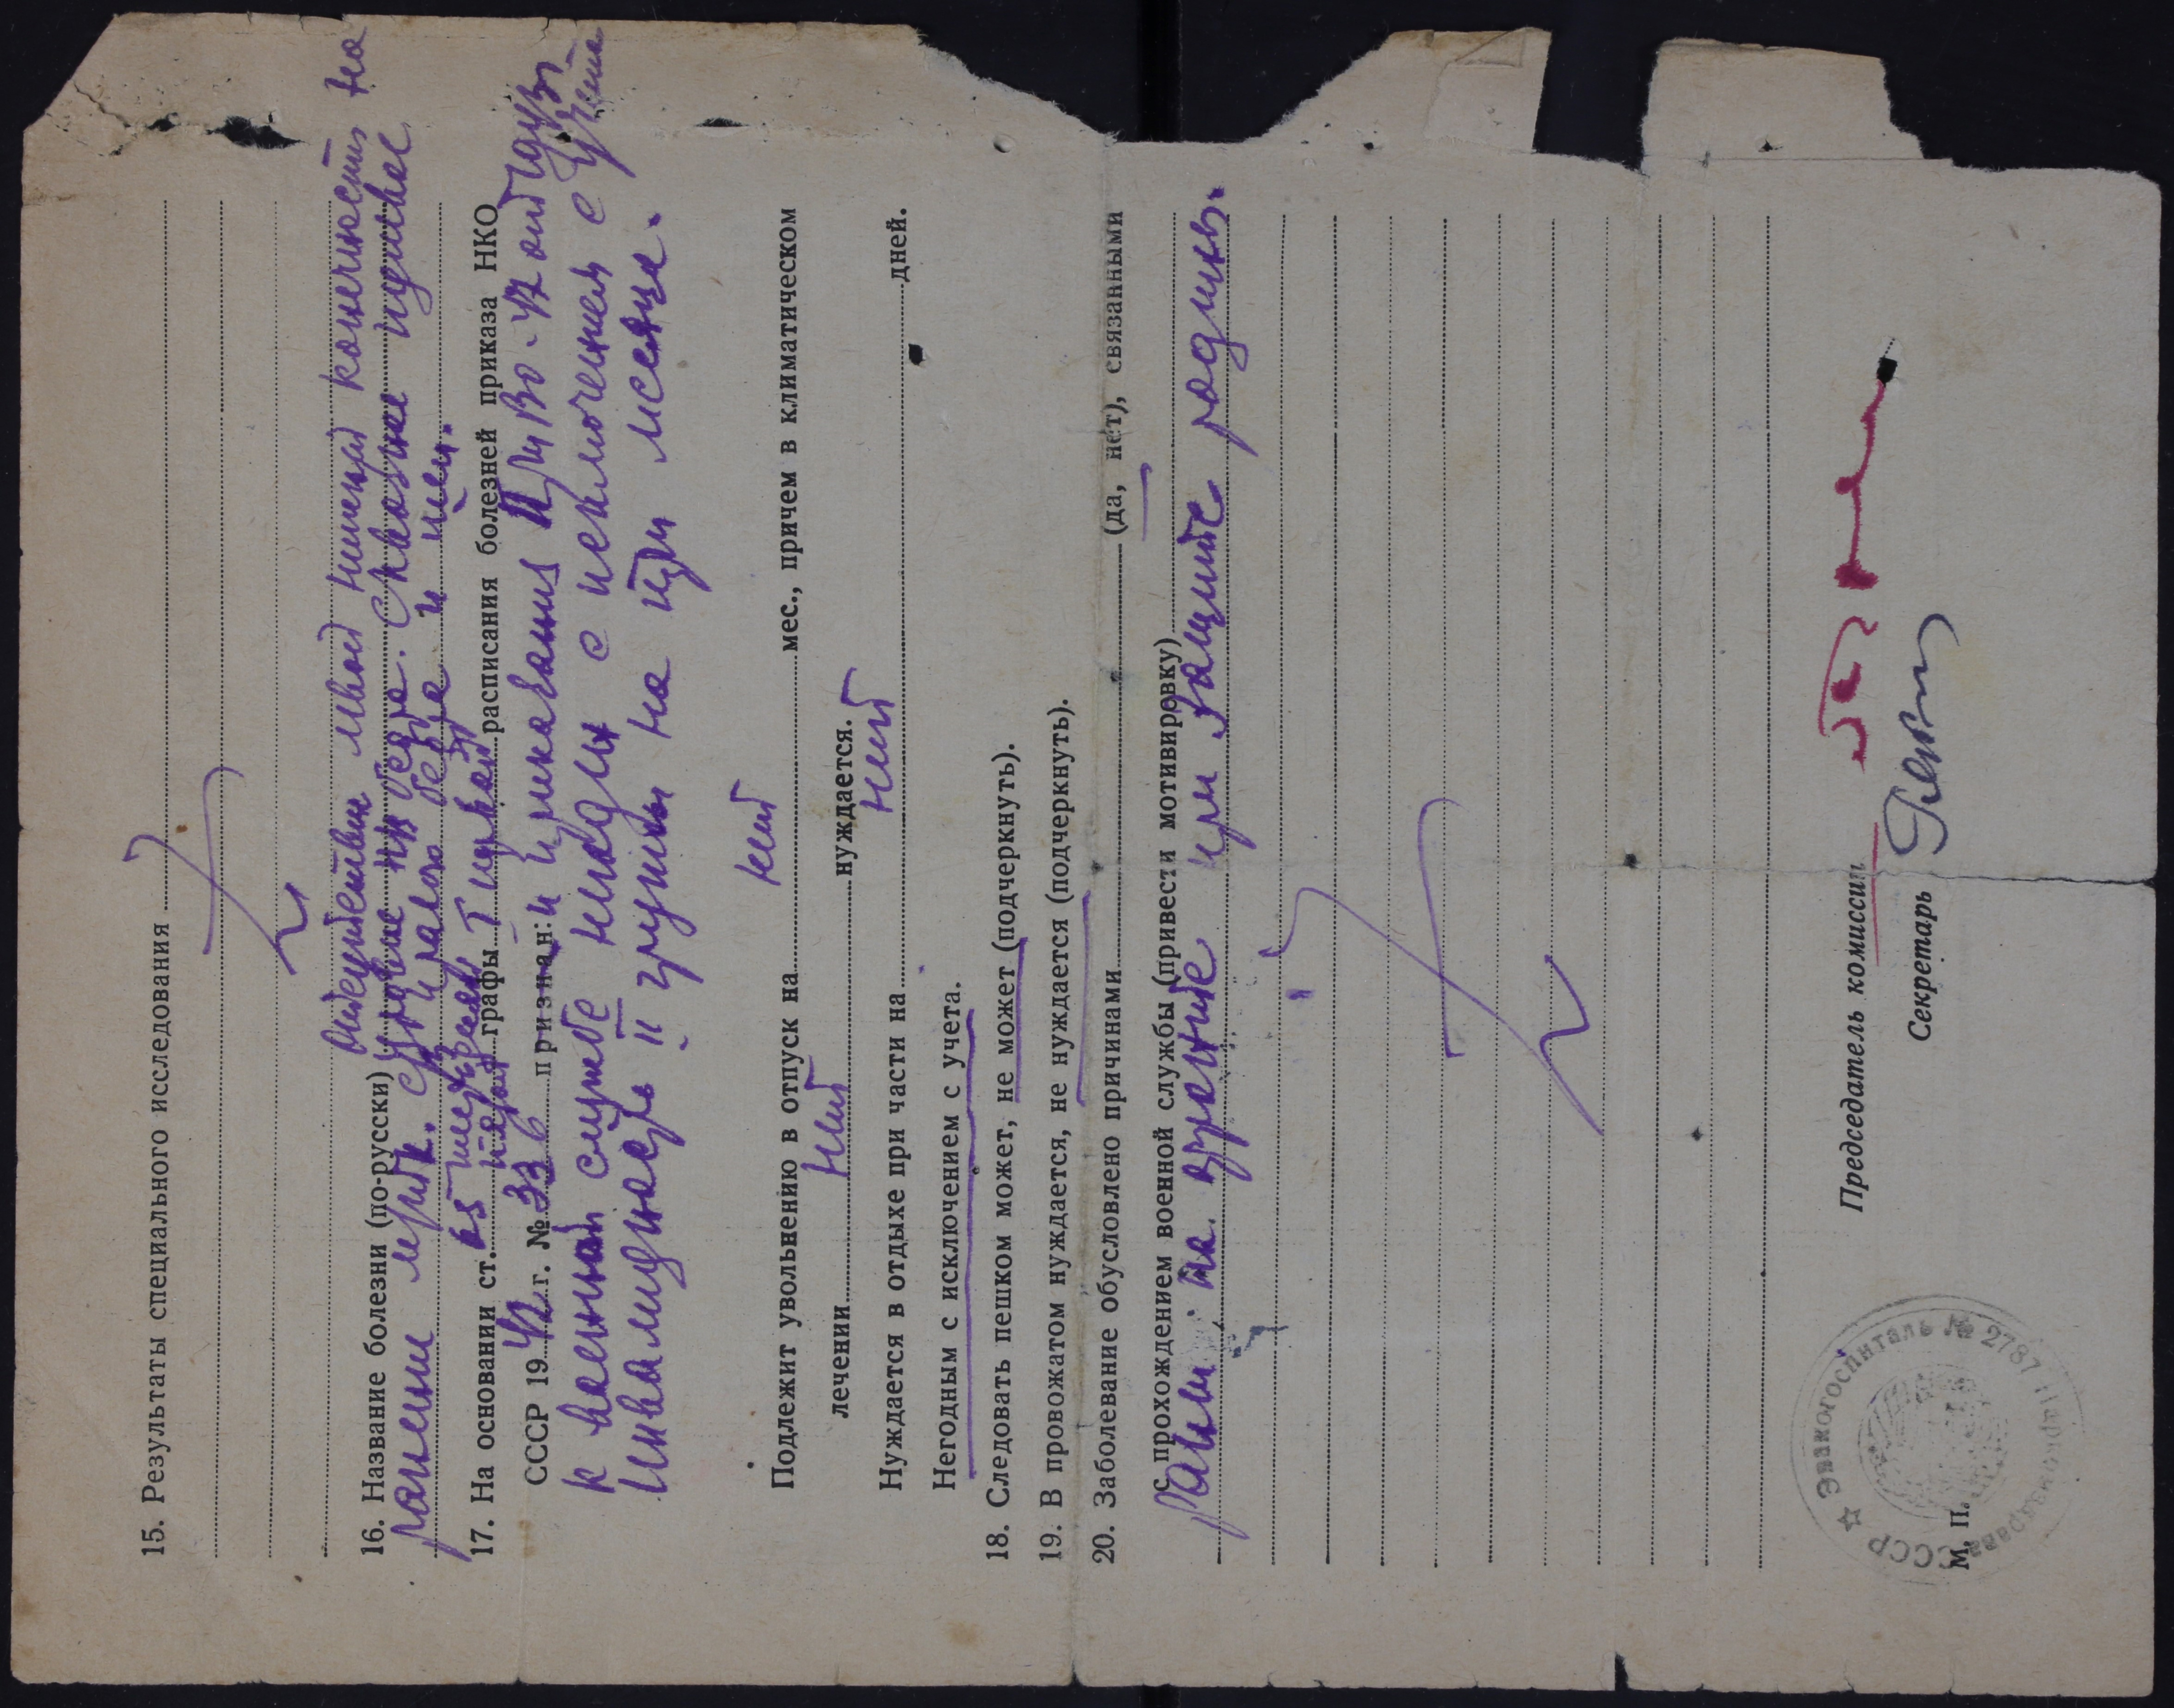 15. Результаты специального исследования
Отсутствие левой нижней конечности на
16. Название болезни (по-русски) уровне н/з бедра. Сквозные пулевые
ранения мягк. правого бедра и шеи.
17. На основании ст. 65 графы I расписания болезней приказа НКО
СССР 1942 г. № 336 признан: и приказания ПриВо
к военной службе негоден с исключением с учета
инвалидность II группы на три месяца.
нет
Подлежит увольнению в отпуск на мес., причем в климатическом
лечении нет нуждается.
Нуждается в отдыхе при части на нет дней.
Негодным с исключением с учета.
18. Следовать пешком может, не может (подчеркнуть).
19. В провожатом нуждается, не нуждается (подчеркнуть).
20. Заболевание обусловлено причинами (да, нет), связанными
с прохождением военной службы (привести мотивировку)
Ранен на фронте при защите родины.
Председатель комиссии
Секретарь
М. П.
СССР ☆ Эвакогоспиталь № 2787 Наркомздрава